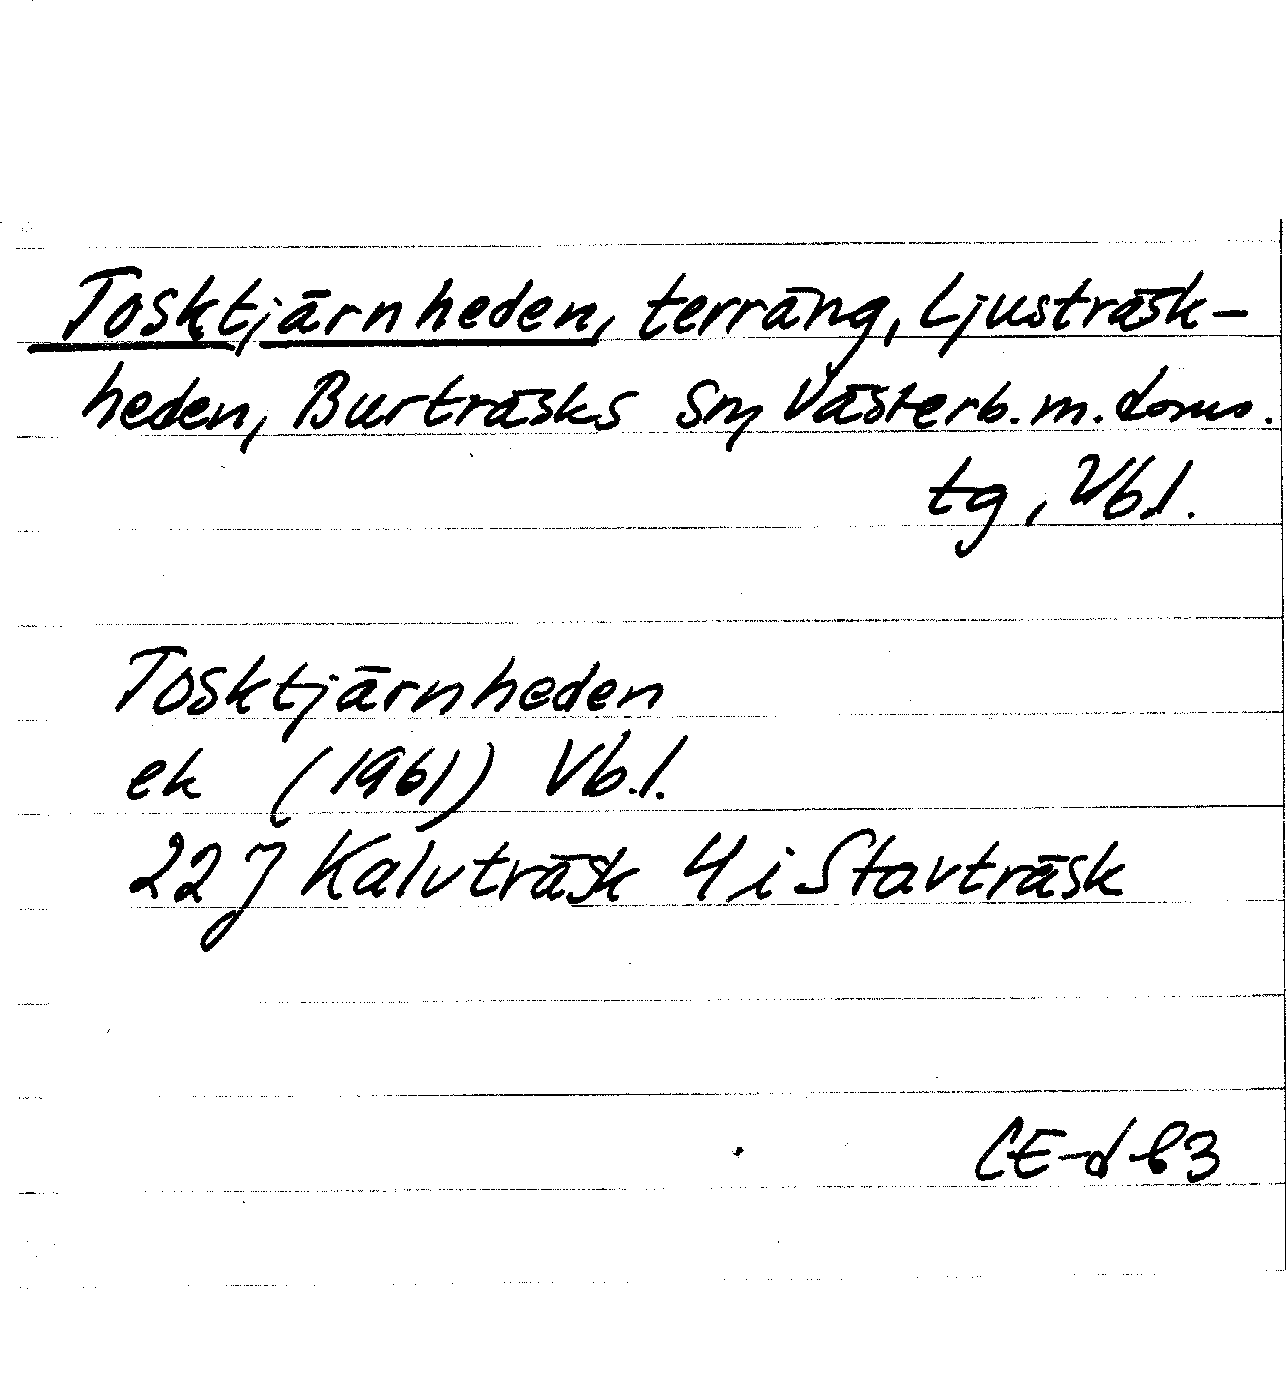 Tosktjärnheden, terräng, Ljusträsk-
heden, Burträsks sn, Västerb. m. doms.
tg, Vbl.
Tosktjärnheden
ek (1961) Vb.l.
22 J Kalvträsk 4 i Stavträsk
CE-d 83